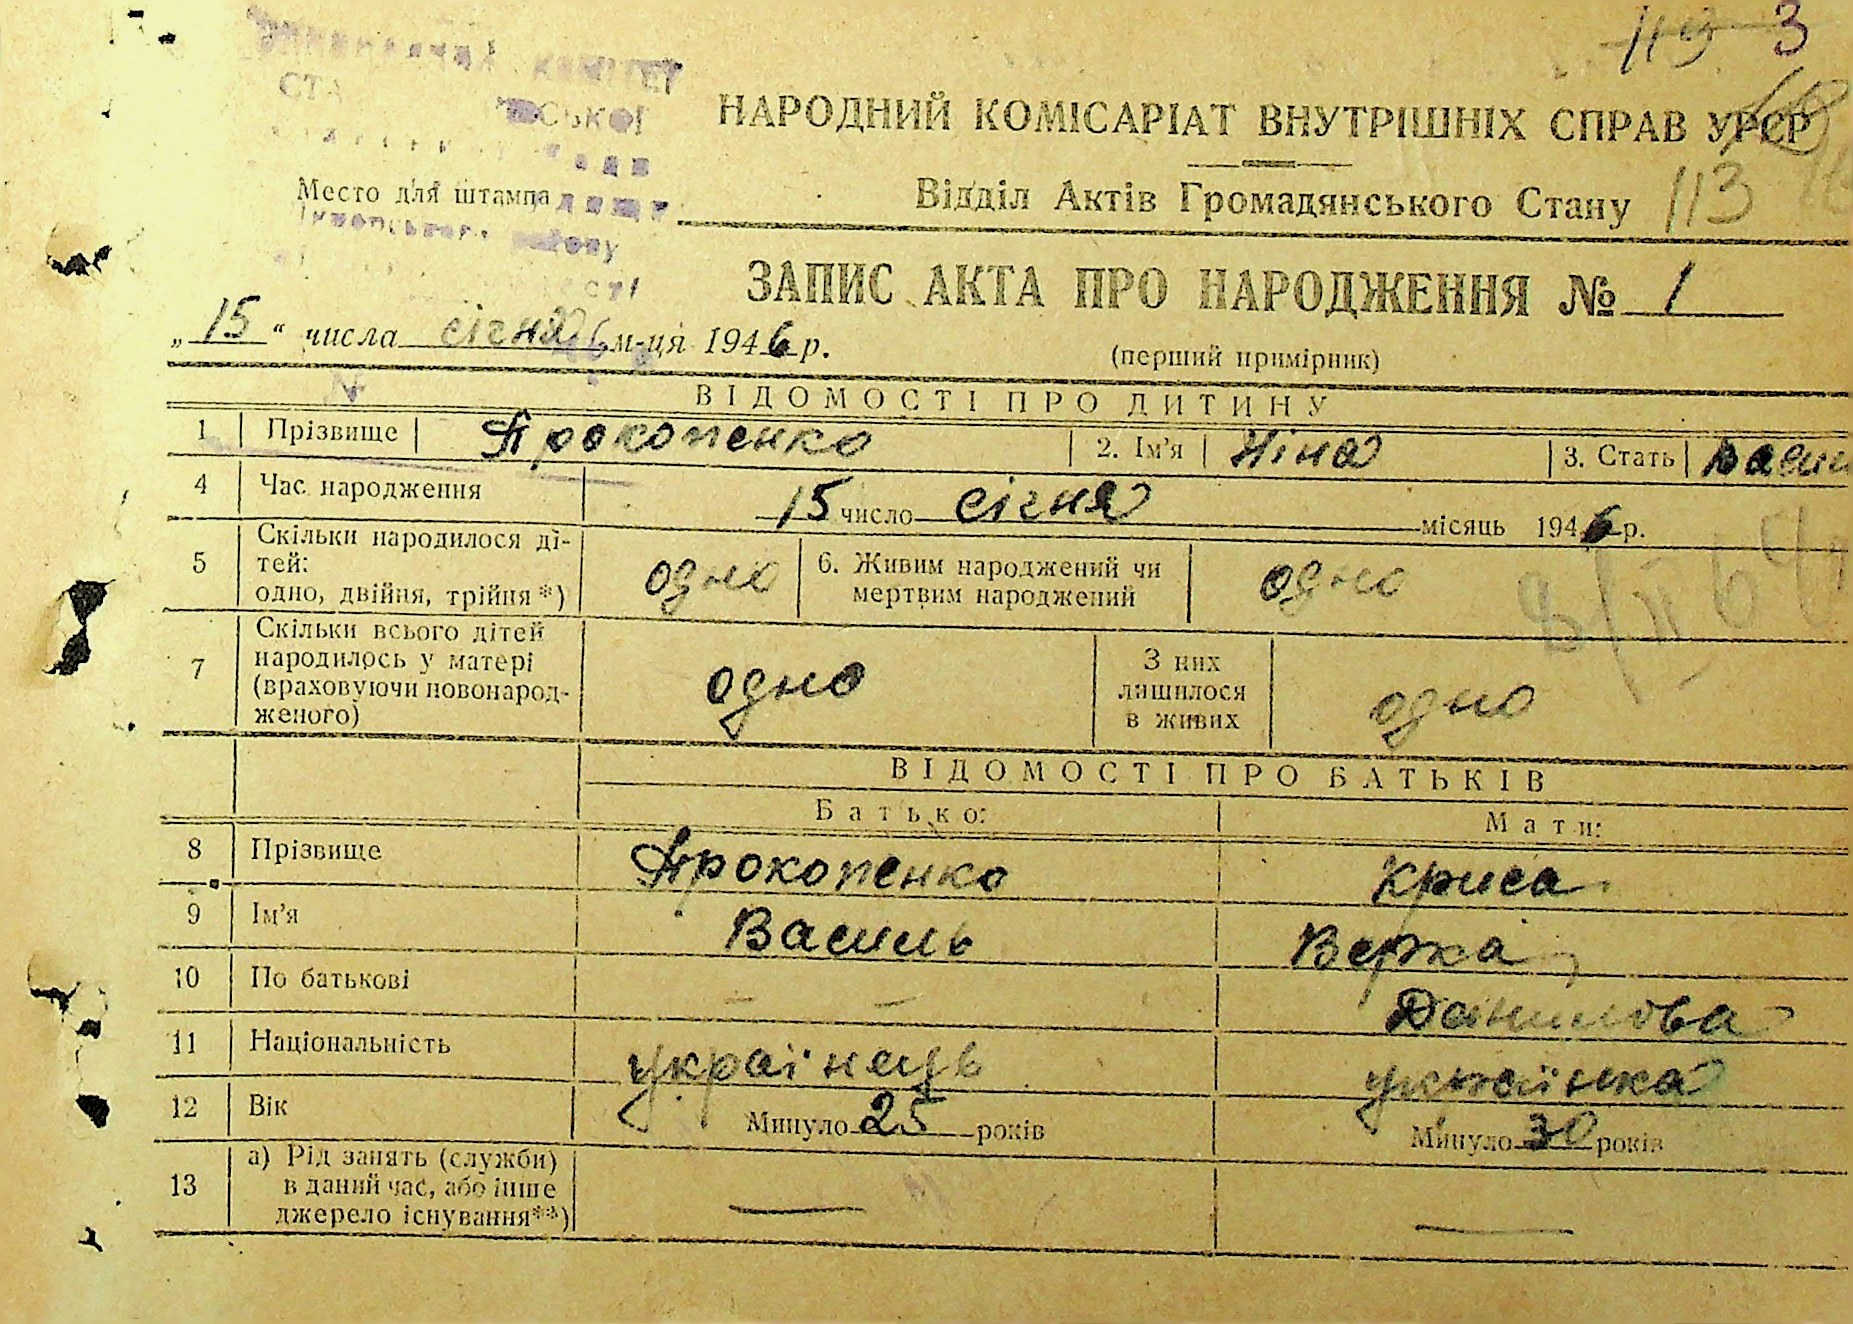 3
НАРОДНИЙ КОМІСАРІАТ ВНУТРІШНІХ СПРАВ УРСР
Место для штампа
Відділ Актів Громадянського Стану 113
ЗАПИС АКТА ПРО НАРОДЖЕННЯ № 1
„15“ числа січня м-ця 1946 р.
(перший примірник)
ВІДОМОСТІ ПРО ДИТИНУ
1 Прізвище Прокопенко 2. Ім'я Ніна 3. Стать
4 Час народження 15 число січня місяць 1946 р.
5 Скільки народилося ді-
тей:
одно, двійня, трійня*) одно 6. Живим народжений чи
мертвим народжений одно
7 Скільки всього дітей
народилось у матері
(враховуючи новонарод-
женого) одно З них
лишилося
в живих одно
ВІДОМОСТІ ПРО БАТЬКІВ
Батько: Мати:
8 Прізвище Прокопенко Криса
9 Ім'я Василь Верка
10 По батькові — — Данилова
11 Національність українець українка
12 Вік Минуло 25 років Минуло 30 років
13 а) Рід занять (служби)
в даний час, або інше
джерело існування**) — —